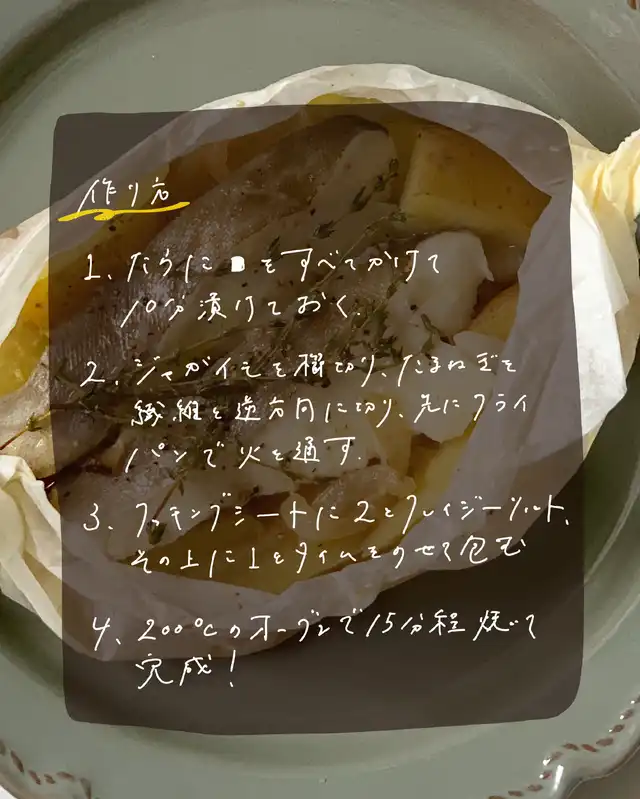 作り方
1、たらに■をすべてかけて
10分漬けておく.
2、ジャガイモを櫛切り、たまねぎを
繊維と逆方向に切り、先にフライ
パンで火を通す.
3、クッキングシートに2とクレイジーソルト、
その上に1とタイムをのせて包む
4、200℃のオーブンで15分程焼いて
完成!